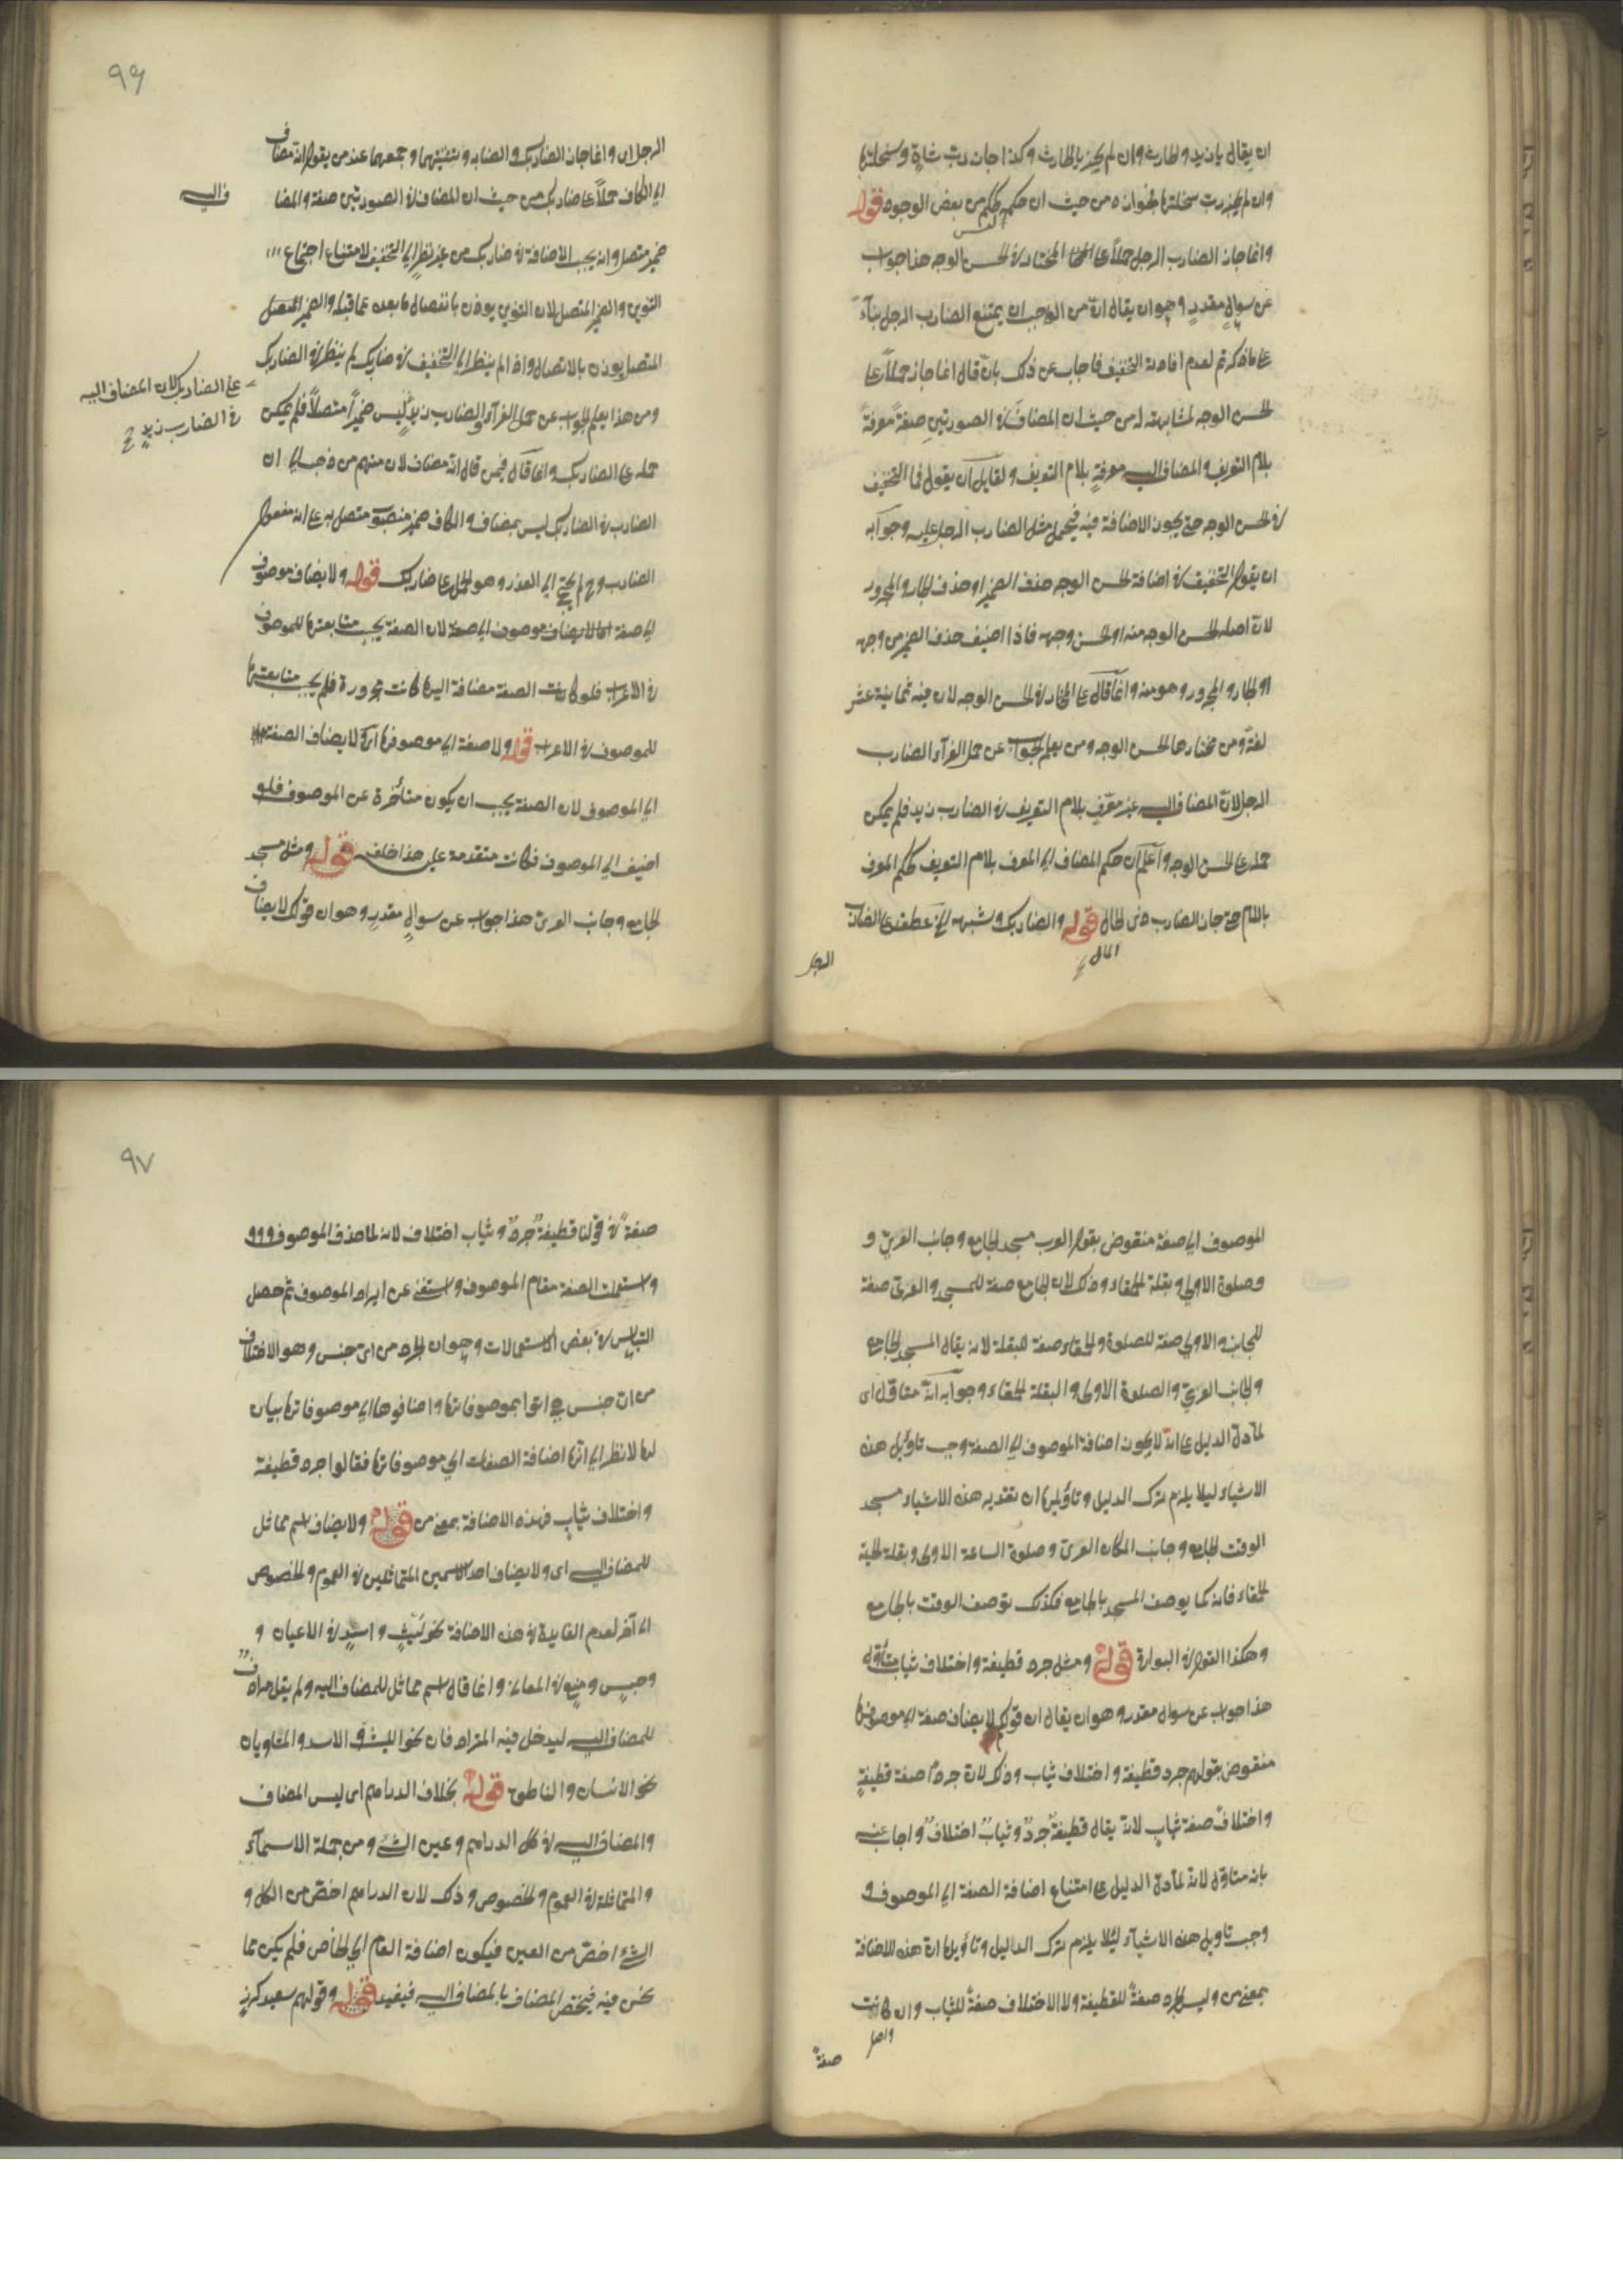 ان يقال يا زيد والحارث وان لم يجز يا الحارث وكذا جاز رب شاة وسخلتها
وان لم يجز رب سخلتها لجواز ه من حيث ان حكمه حكم من بعض الوجوه قوله
وانما جاز الضارب الرجل حملاً على المختار في الحسن الوجه هذا جواب
عن سوالٍ مقدرٍ وهو ان يقال انه من الواجب ان يمتنع الضارب الرجل بناءً
على ما ذكرتم لعدم افادته التخفيف فاجاب عن ذلك بان قال انما جاز حملاً على
الحسن الوجه لمشابهته له من حيث ان المضاف في الصورتين صفة معرفة
بلام التعريف والمضاف اليه معرفة بلام التعريف ولقايل ان يقول فما التخفيف
في الحسن الوجه حتى يجوز الاضافة فيه فيحمل مثل الضارب الرجل عليه وجوابه
ان يقول التخفيف في اضافة الحسن الوجه حذف الضمير او حذف الجار والمجرور
لان اصله الحسن الوجه منه او الحسن وجهه فاذا اضيف حذف الضمير من وجهه
او الجار والمجرور وهو منه وانما قال على المختار في الحسن الوجه لان فيه ثمانية عشر
لغة ومن مختارها الحسن الوجه ومن يعلم الجواب عن حمل الفرآء الضارب
الرجل لان المضاف اليه غير معرّف بلام التعريف في الضارب زيد فلم يمكن
حمله على الحسن الوجه واعلم ان حكم المضاف الى المعرف بلام التعريف حكم المعرف
باللام حتى جاز الضارب غلام المال قوله والضاربك وشبهه الخ عطف على الضارب
الرجل
٩٦
الرجل اى وانما جاز الضاربك والضاربه وتثنيتهما وجمعهما عند من يقول انه مضاف
الى الكاف حملاً على ضاربك من حيث ان المضاف في الصورتين صفة والمضا
ف اليه
ضمير متصل وانه يجب الاضافة في ضاربك من غير نظر الى التخفيف لامتناع اجتماع
التنوين والضمير المتصل لان التنوين يوذن بانفصال ما بعده عما قبله والضمير المتصل
المتصل يوذن بالاتصال واذا لم ينظر الى التخفيف في ضاربك لم ينظر في الضاربك
على الضاربك لان المضاف اليه
في الضارب زيدٍ
ومن هذا يعلم الجواب عن حمل الفرآء والضارب زيدٍ ليس ضميراً متصلاً فلم يمكن
حمله على الضاربك وانما قال فيمن قال انه مضاف لان منهم من ذهب الى ان
الضارب في الضاربك ليس بمضاف والكاف ضمير منصوب متصل به على انه مفعول
الضارب وح لم يحتج الى العذر وهو الحمل على ضاربك قوله ولا يضاف موصوف
الى صفة لا يضاف موصوف الى صفة لان الصفة يجب متابعتها للموصوف
في الاعراب فلو كانت الصفة مضافة اليها كانت مجرورة فلم يجب متابعتها
للموصوف في الاعراب قوله ولا صفة الى موصوفها اى لا يضاف الصفة
الى الموصوف لان الصفة يجب ان يكون متأخرة عن الموصوف فلو
اضيف الى الموصوف فكانت متقدمة عليه هذا خلف قوله ومثل مسجد
الجامع وجانب الغربى هذا جواب عن سوالٍ مقدرٍ وهو ان قولك لا يضاف
الموصوف الى صفة منقوض بقول العرب مسجد الجامع وجانب الغربى و
وصلوة الاولى وبقلة الحمقاء وذلك لان الجامع صفة للمسجد والغربى صفة
للجانب والاولى صفة للصلوة والحمقاء صفة للبقلة لانه يقال المسجد الجامع
والجانب الغربى والصلوة الاولى والبقلة الحمقاء وجوابه انه متاوّل اى
لما دل الدليل على انه لا يكون اضافة الموصوف الى الصفة وجب تاويل هذه
الاشياء ليلا يلزم ترك الدليل وتاويلها ان تقدير هذه الاشياء مسجد
الوقت الجامع وجانب المكان الغربى وصلوة الساعة الاولى وبقلة الحبة
الحمقاء فانه كما يوصف المسجد بالجامع فكذلك توصف الوقت بالجامع
وهكذا القول في البواقى قوله ومثل جرد قطيفة واخلاف ثياب متأول
هذا جواب عن سوال مقدر وهو ان يقال ان قولكم لا يضاف صفة الى موصوفها
منقوض بقولهم جرد قطيفة واختلاف ثياب وذلك لان جردٌ صفة قطيفةٍ
واختلافٌ صفة ثيابٍ لانه يقال قطيفةٌ جردٌ وثيابٌ اختلافٌ واجاب عنه
بانه متاول لانه لما دل الدليل على امتناع اضافة الصفة الى الموصوف و
وجب تاويل هذه الاشيآء ليلا يلزم ترك الدليل وتاويلها ان هذه الاضافة
بمعنى من وليس الجرد صفةً للقطيفة ولا الاختلاف صفةً للثياب وان كانت
صفةً
٩٧
صفةً في قولنا قطيفةٌ جردٌ وثياب اختلاف لانه لما حذف الموصوف
واستعملت الصفة مقام الموصوف واستغنى عن ايراد الموصوف ثم حصل
التباس في بعض الاستعمالات وهو ان الجرد من اى جنس وهو الاختلاف
من اى جنس اتوا بموصوفاتها واضافوها الى موصوفاتها بيان
لها لا نظر الى انها اضافة الصفات الى موصوفاتها فقالوا جرد قطيفة
واختلاف ثيابٍ فهذه الاضافة بمعنى من قوله ولا يضاف اسم مماثل
للمضاف اليه اى ولا يضاف احد الاسمين المتماثلين في العموم والخصوص
الى آخر لعدم الفايدة في هذه الاضافة نحو ليثٍ واسدٍ في الاعيان و
وحبسٍ ومنعٍ في المعانى وانما قال اسم مماثل للمضاف اليه ولم يقل مرادف
للمضاف اليه ليدخل فيه المتراد فان نحو الليث والاسد والمتساويان
نحو الانسان والناطق قوله بخلاف الدراهم اى ليس المضاف
والمضاف اليه في كل الدراهم وعين الشئ ومن جملة الاسمآء
والمتماثلة في العموم والخصوص وذلك لان الدراهم اخص من الكل و
الشئ اخص من العين فيكون اضافة العام الى الخاص فلم يكن مما
نحن فيه فيختص المضاف بالمضاف اليه فيفيد قوله وقولهم سعيد كرزٍ